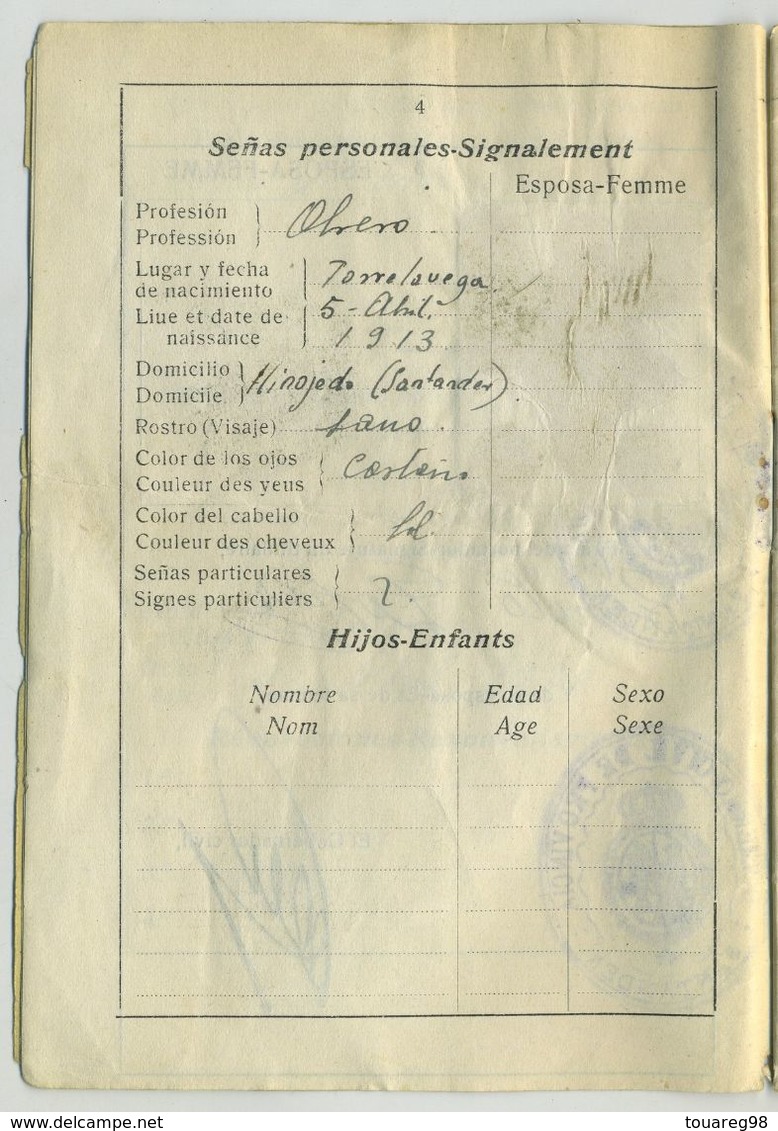 4
Señas personales-Signalement
Esposa-Femme
Profesión
Professión
Obrero
Lugar y fecha
de nacimiento
Liue et date de
naissance
Torrelavega
5 - Abril
1913
Domicilio
Domicile
Hinojedo (Santander)
Rostro (Visaje)
sano
Color de los ojos
Couleur des yeus
Castaño
Color del cabello
Couleur des cheveux
id
Señas particulares
Signes particuliers
Hijos-Enfants
Nombre Edad Sexo
Nom Age Sexe
delcampe.net
touareg98